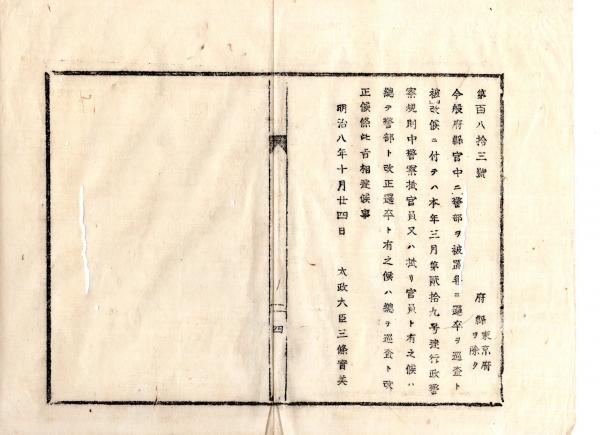 第百八拾三號
府縣 東京府ヲ除ク
今般府縣官中ニ警部ヲ被置邏卒ヲ巡査ト
被改候ニ付テハ本年三月第貳拾九号達行政警
察規則中警察掛官員又ハ掛リ官員ト有之候ハ
總テ警部ト改正邏卒ト有之候ハ總テ巡査ト改
正候條此旨相達候事
明治八年十月廿四日 太政大臣三條實美
四